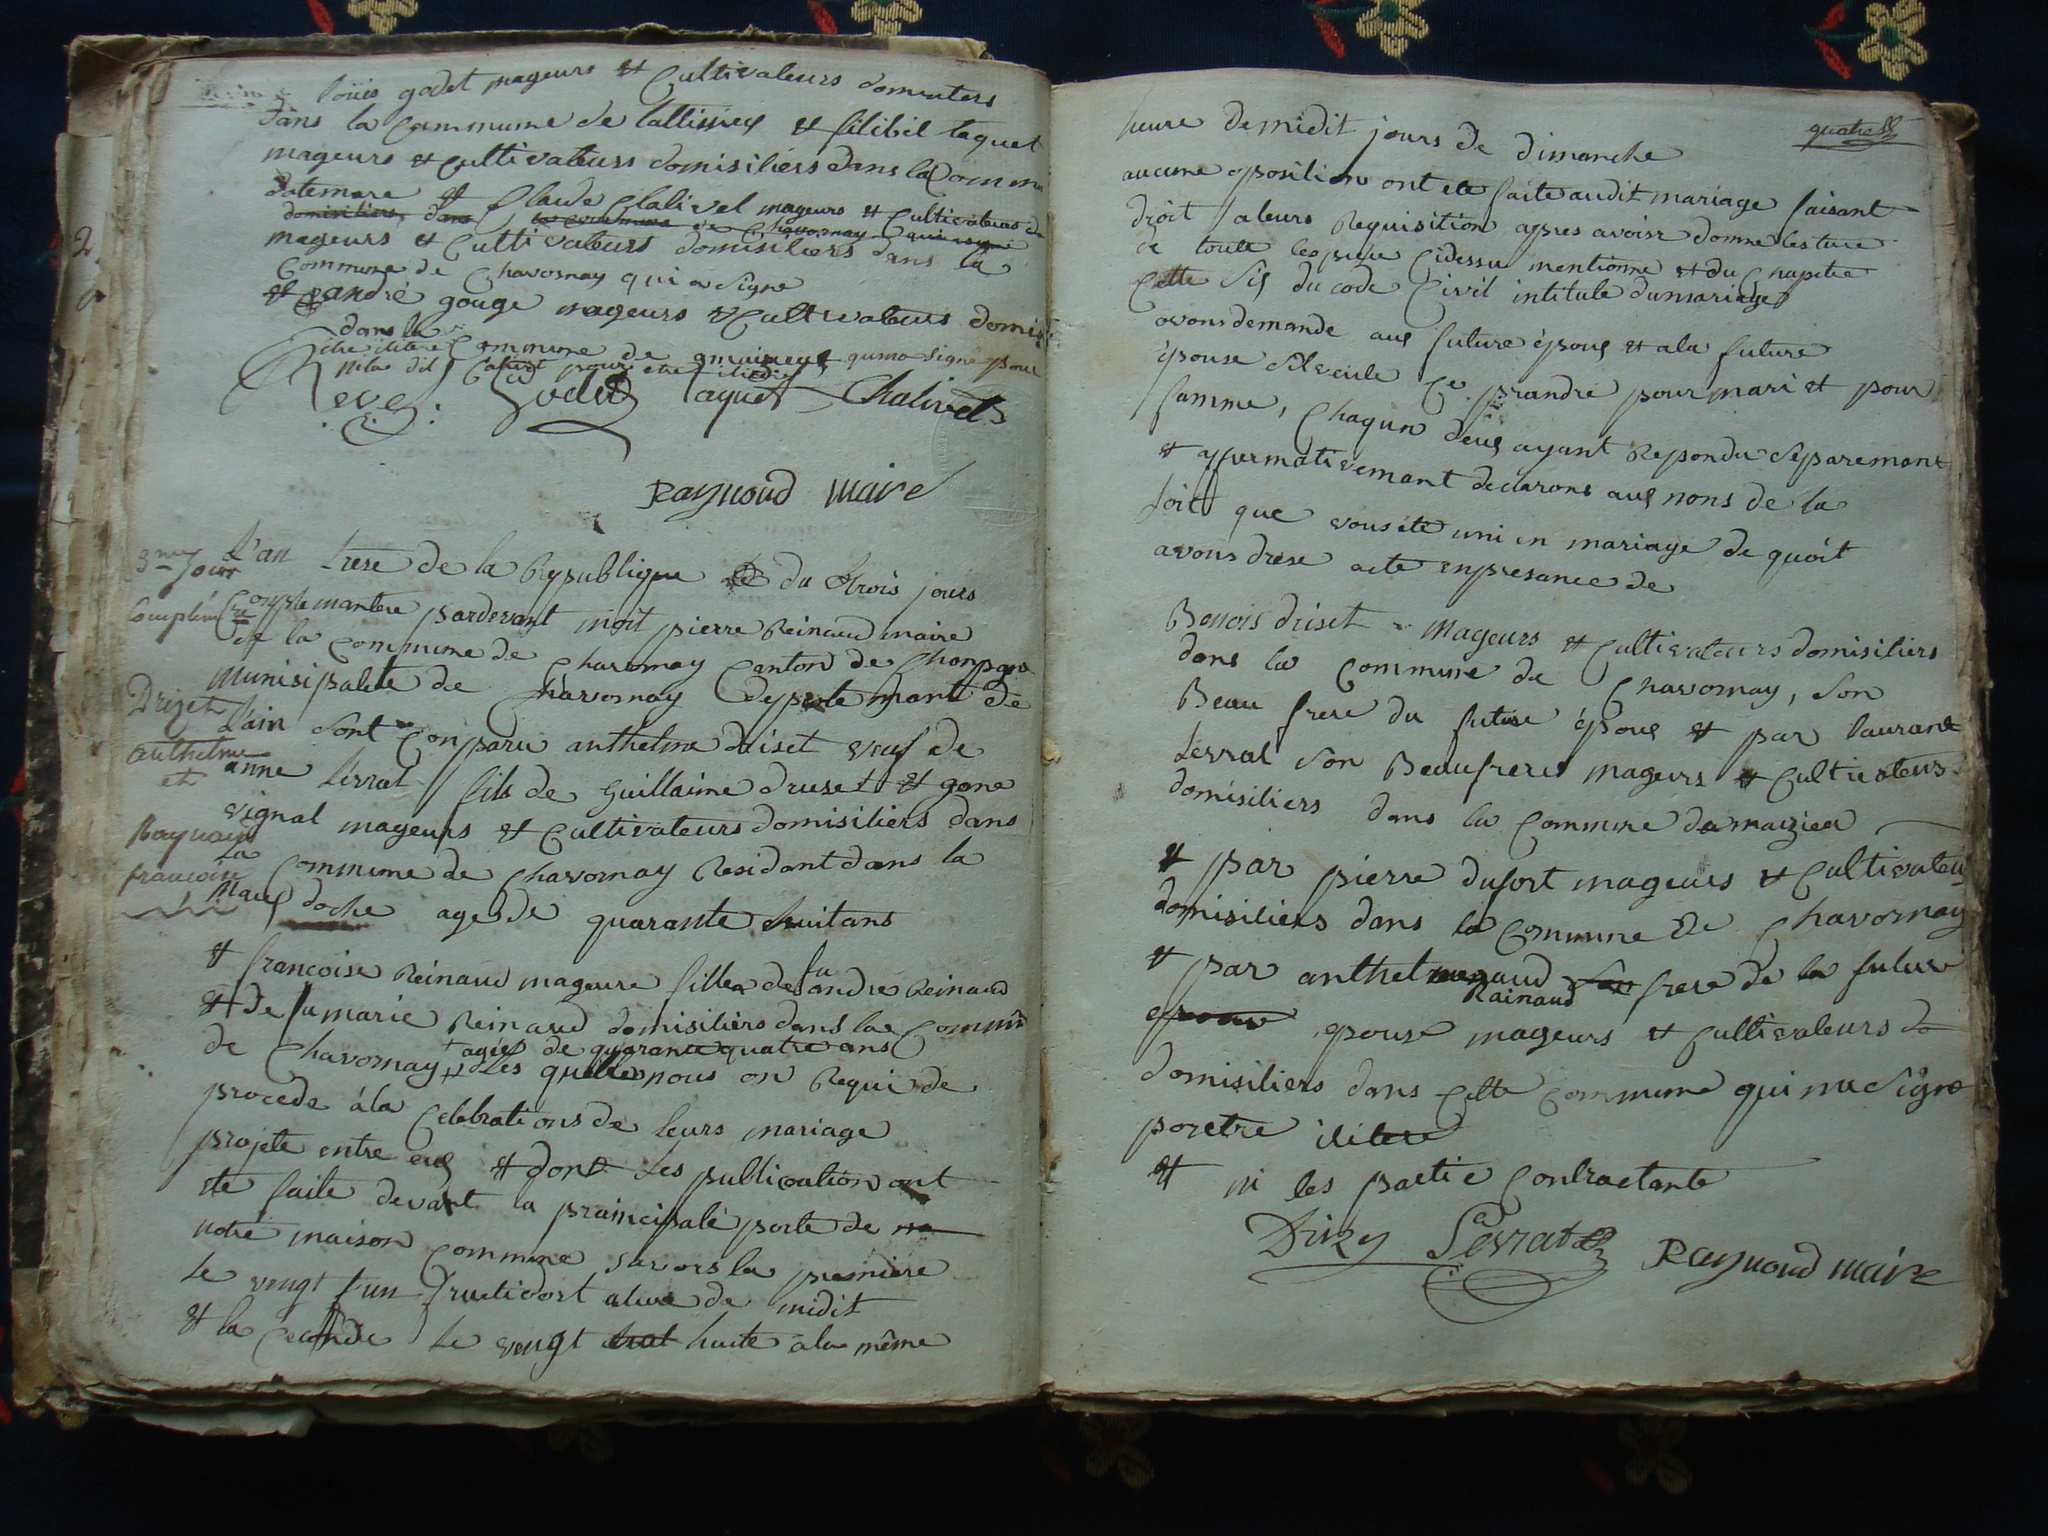 loüis godet mageurs et Cultivateurs
dans la Commune de et filibil taquet
mageurs et Cultivateurs domisiliers dans la Commu
et Claude Chalivet mageurs et Cultivateurs
domisiliers dans la commune de Chavornay qui
mageurs et Cultivateurs domisiliers dans la
Commune de Chavornay qui a Signe
et andré gouge mageurs et Cultivateurs domisi
dans la
Commune de Signe pour
pour etre
Godet taquet Chalivet
Raynoud maire
3me Jour
Complém
L'an trese de la Republique du trois jours
Complemantere pardevant moit pierre Reinaud maire
de la Commune de Chavornay Canton de Chonpagne
Munisipalite de Chavornay Departemant de
Drizet
anthelme
et
Raynaud
francoise
l'ain Sont Conparu anthelme driset veuf de
anne Serrat fils de Guillaime druset et gone
vignal mageurs et Cultivateurs domisiliers dans
La Commune de Chavornay Residant dans la
doche age de quarante huit ans
et francoise Reinaud mageure filles de fu andre Reinaud
et de fu marie Reinaud domisiliers dans la Commune
de Chavornay + agée de quarante quatre ans
Les quelles nous on Requi de
procede à la Celebrations de leurs mariage
projete entre eus et dont Les publication ont
ete faite devant la prainsipale porte de
notre maison Commune savoirs la premiere
Le vengt un fructidort a lure de midit
et la Ceconde Le vengt huite a la même
quatre
heure de midit jours de dimanche
aucune oposition ont ete faite audit mariage faisant
droit a leurs Requisition apres avoire donne lecture
de toute les piese Cidessu mentionne et du Chapitre
Cette Sis du code Civil intitule du mariage
avons demande aus future épous et a la future
épouse Sil veule Ce prandre pour mari et pour
famme, Chaqun deus ayant Repondu Separemant
et affirmativemant declarons aus nons de la
loit que vous ete uni en mariage de quoit
avons drese acte en presance de
Benois driset mageurs et Cultivateurs domisiliers
dans la Commune de Chavornay, Son
Beau frere du future épous et par laurant
Serrat Son Beaufrere mageurs et Cultivateurs
domisiliers dans la Commune de
et par pierre dufort mageurs et Cultivateu
domisiliers dans la Commune de Chavornay
et par anthelme Rainaud frere de la future
epouse mageurs et Cultivateurs
domisiliers dans Cette Commune qui nu Signe
por etre ilitere
et ni les partie Contractante
Drizy Serrat Raynoud maire